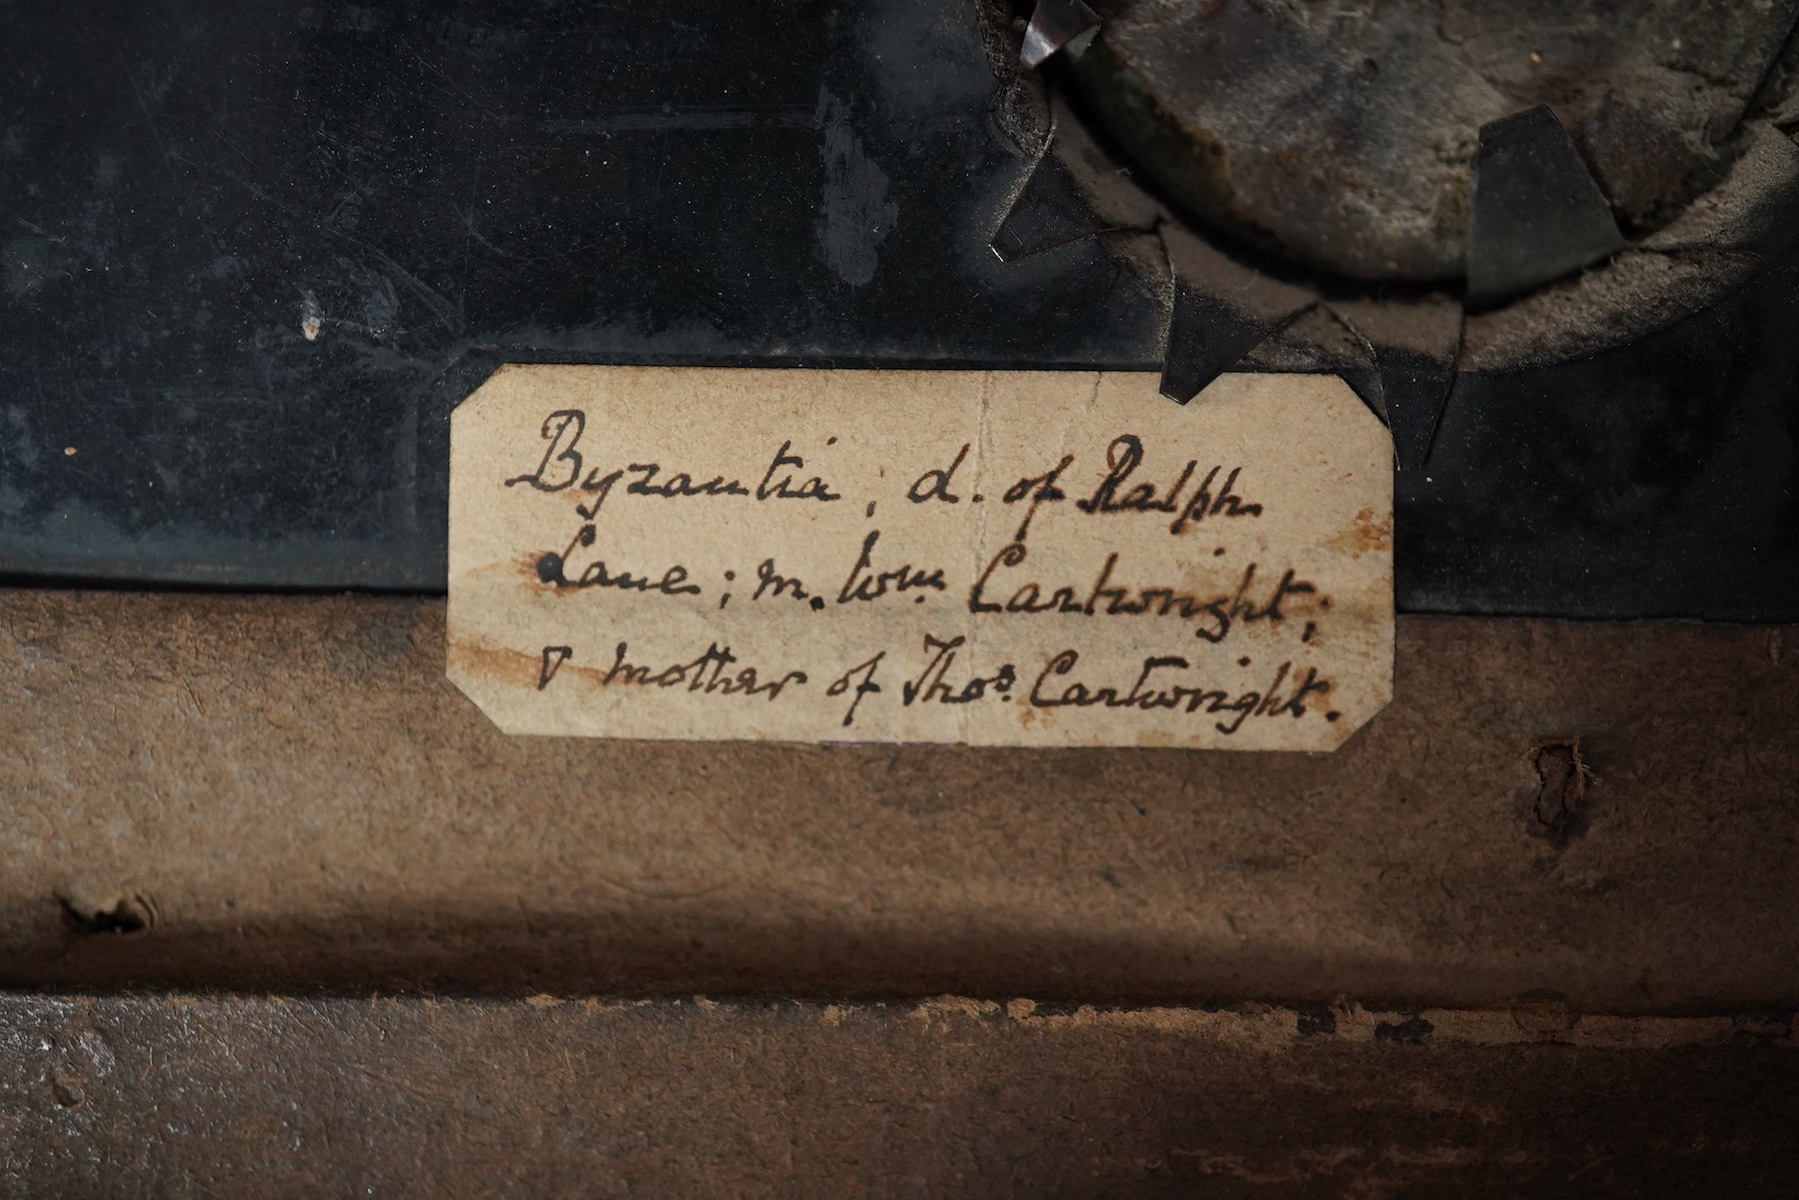 Byzantia, d. of Ralph
Lane; m. Wm. Cartwright;
& mother of Thos. Cartwright.